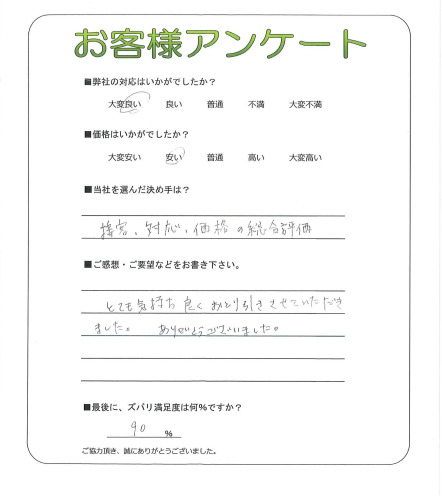 お客様アンケート
■弊社の対応はいかがでしたか？
大変良い 良い 普通 不満 大変不満
■価格はいかがでしたか？
大変安い 安い 普通 高い 大変高い
■当社を選んだ決め手は？
接客、対応、価格の総合評価
■ご感想・ご要望などをお書き下さい。
とても気持ち良くおとり引きさせていただき
ました。 ありがとうございました。
■最後に、ズバリ満足度は何%ですか？
90 %
ご協力頂き、誠にありがとうございました。